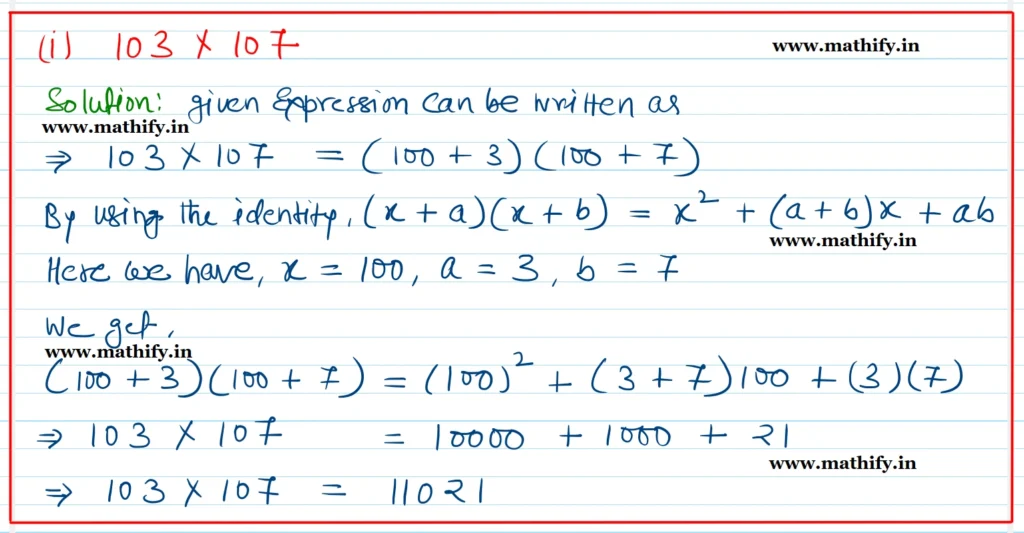 (i) 103 × 107
www.mathify.in
Solution: given Expression can be written as
www.mathify.in
⇒ 103 × 107 = (100 + 3) (100 + 7)
By using the identity, (x + a)(x + b) = x² + (a + b)x + ab
www.mathify.in
Here we have, x = 100, a = 3, b = 7
We get,
www.mathify.in
(100 + 3)(100 + 7) = (100)² + (3 + 7)100 + (3)(7)
⇒ 103 × 107 = 10000 + 1000 + 21
www.mathify.in
⇒ 103 × 107 = 11021